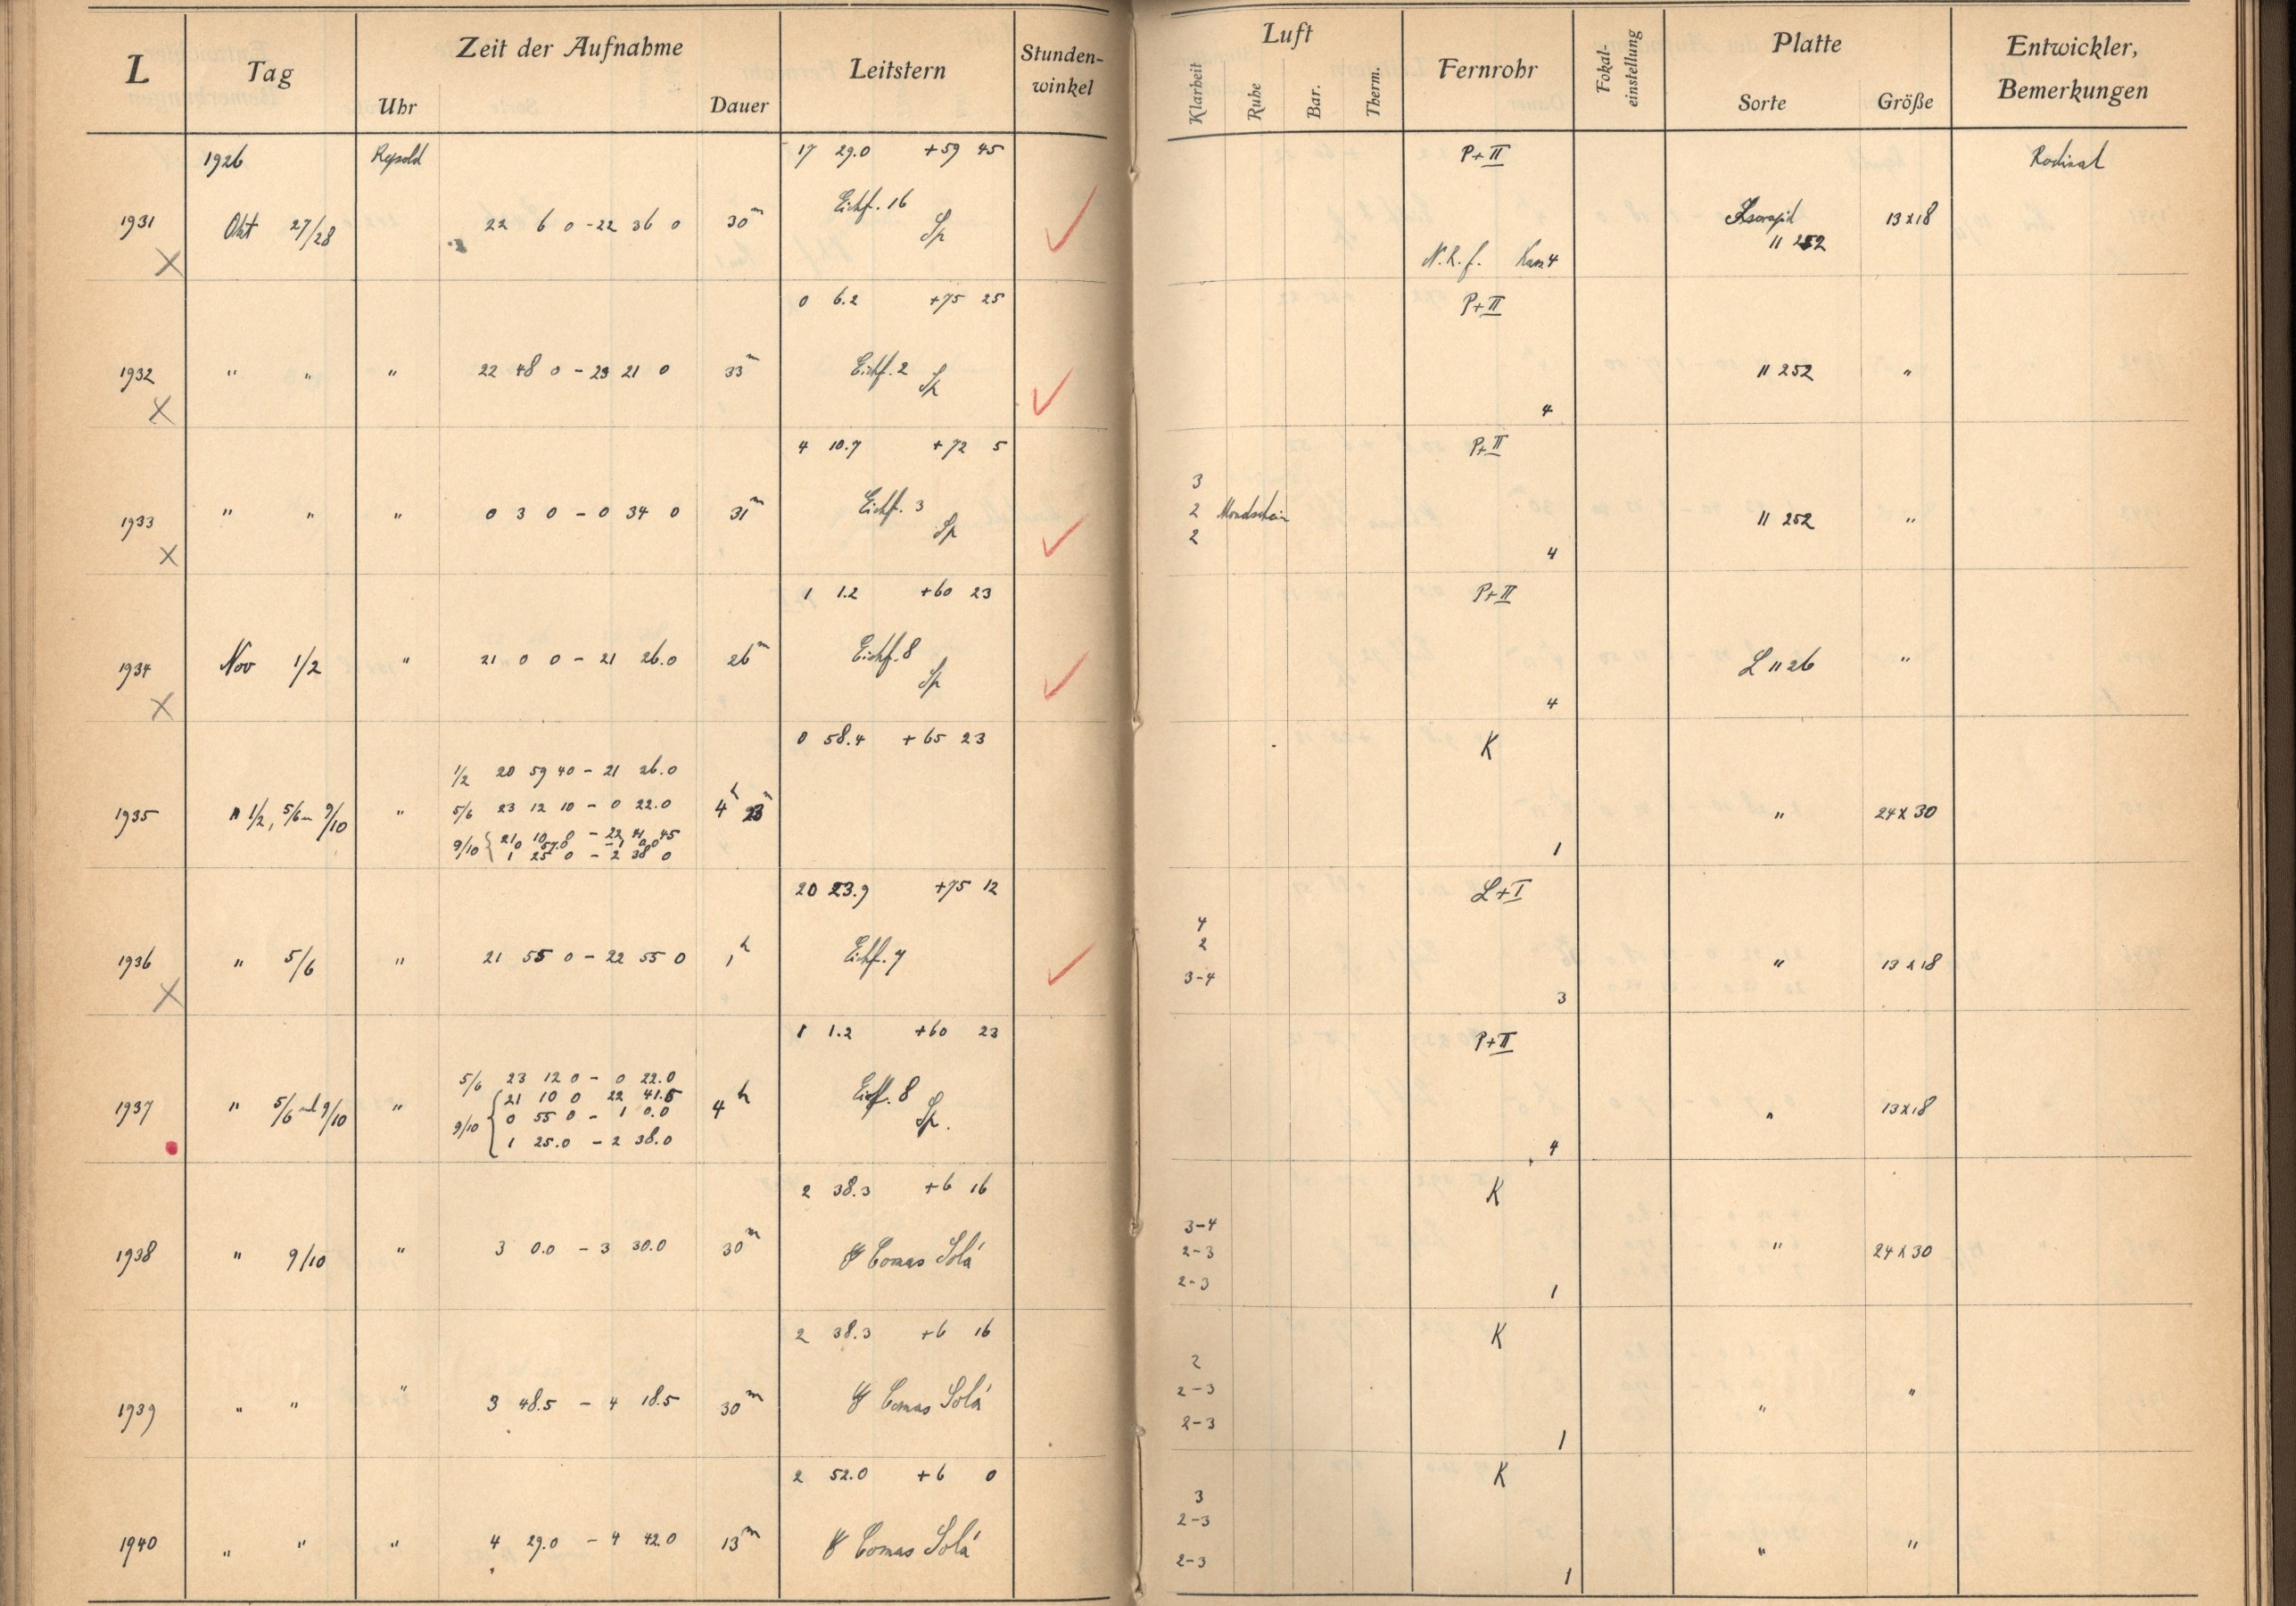 L Tag Zeit der Aufnahme Leitstern Stunden-winkel Luft Fernrohr Fokal-einstellung Platte Entwickler, Bemerkungen
Uhr Dauer Klarheit Ruhe Bar. Therm. Sorte Größe
1926 Repsold 17 29.0 +59 45 P+II Rodinal
1931 Okt 27/28 22 6 0 - 22 36 0 30m Eichf. 16 Sp Isorapid 13x18
11 252
N.R.f. Kass 4
0 6.2 +75 25 P+II
1932 " " " 22 48 0 - 23 21 0 33m Eichf. 2 Sp 11 252 "
4
4 10.7 +72 5 P+II
3
1933 " " " 0 3 0 - 0 34 0 31m Eichf. 3 Sp 2 Mondschein 11 252 "
2
4
1 1.2 +60 23 P+II
1934 Nov 1/2 " 21 0 0 - 21 26.0 26m Eichf. 8 Sp L 1126 "
4
0 58.4 +65 23 K
1/2 20 59 40 - 21 26.0
1935 " 1/2, 5/6 9/10 " 5/6 23 12 10 - 0 22.0 4h 23m " 24x30
9/10 { 21 10 0 - 22 41 45
0 57.0 - 1 0 0
1 25 0 - 2 38 0
1
20 23.9 +75 12 L+I
4
2
1936 " 5/6 " 21 55 0 - 22 55 0 1h Eichf. 7 3-4 " 13x18
3
1 1.2 +60 23 P+II
5/6 23 12 0 - 0 22.0
9/10 { 21 10 0 22 41.5
1937 " 5/6 und 9/10 " 0 55 0 - 1 0.0 4h Eichf. 8 Sp. " 13x18
1 25.0 - 2 38.0
4
2 38.3 +6 16 K
3-4
1938 " 9/10 " 3 0.0 - 3 30.0 30m Comas Solá 2-3 " 24x30
2-3
1
2 38.3 +6 16 K
2
1939 " " " 3 48.5 - 4 18.5 30m Comas Solá 2-3 " "
2-3
1
2 52.0 +6 0 K
3
2-3
1940 " " " 4 29.0 - 4 42.0 13m Comas Solá 2-3 " "
1